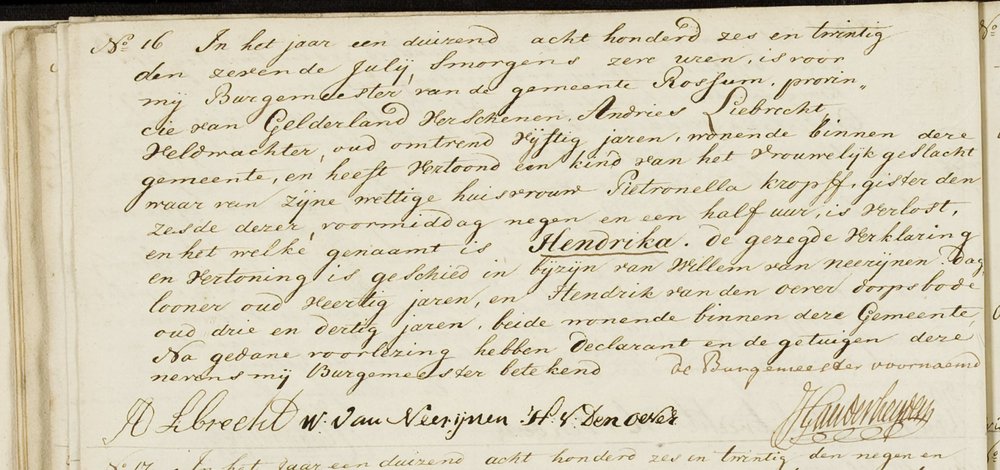 No 16 In het jaar een duizend acht honderd zes en twintig
den zevende Julij, Smorgens zeve uren, is voor
mij Burgemeester van de gemeente Rossum, provin„
cie van Gelderland Verschenen, Andries Liebrecht,
Veldwachter, oud omtrend Vijftig jaren, wonende binnen deze
gemeente, en heeft Vertoond een kind van het Vrouwelijk geslacht
waar van zijne wettige huisvrouw Pietronella kropff, gister den
zesde dezer, voormiddag negen en een half uur, is Verlost,
en het welke genaamt is Hendrika. de gezegde Verklaring
en Vertoning is geschied in bijzijn van Willem van neerijnen Dag„
looner oud Veertig jaren, en Hendrik van den oever dorpsbode
oud drie en dertig jaren, beide wonende binnen deze Gemeente,
Na gedane voorlezing hebben declarant en de getuigen deze
nevens mij Burgemeester betekend de Burgemeester voornaemd
A Librecht W. Van Neerijnen H. V. Den oever
No 17 In het Jaar een duizend acht honderd zes in twintig den negen en